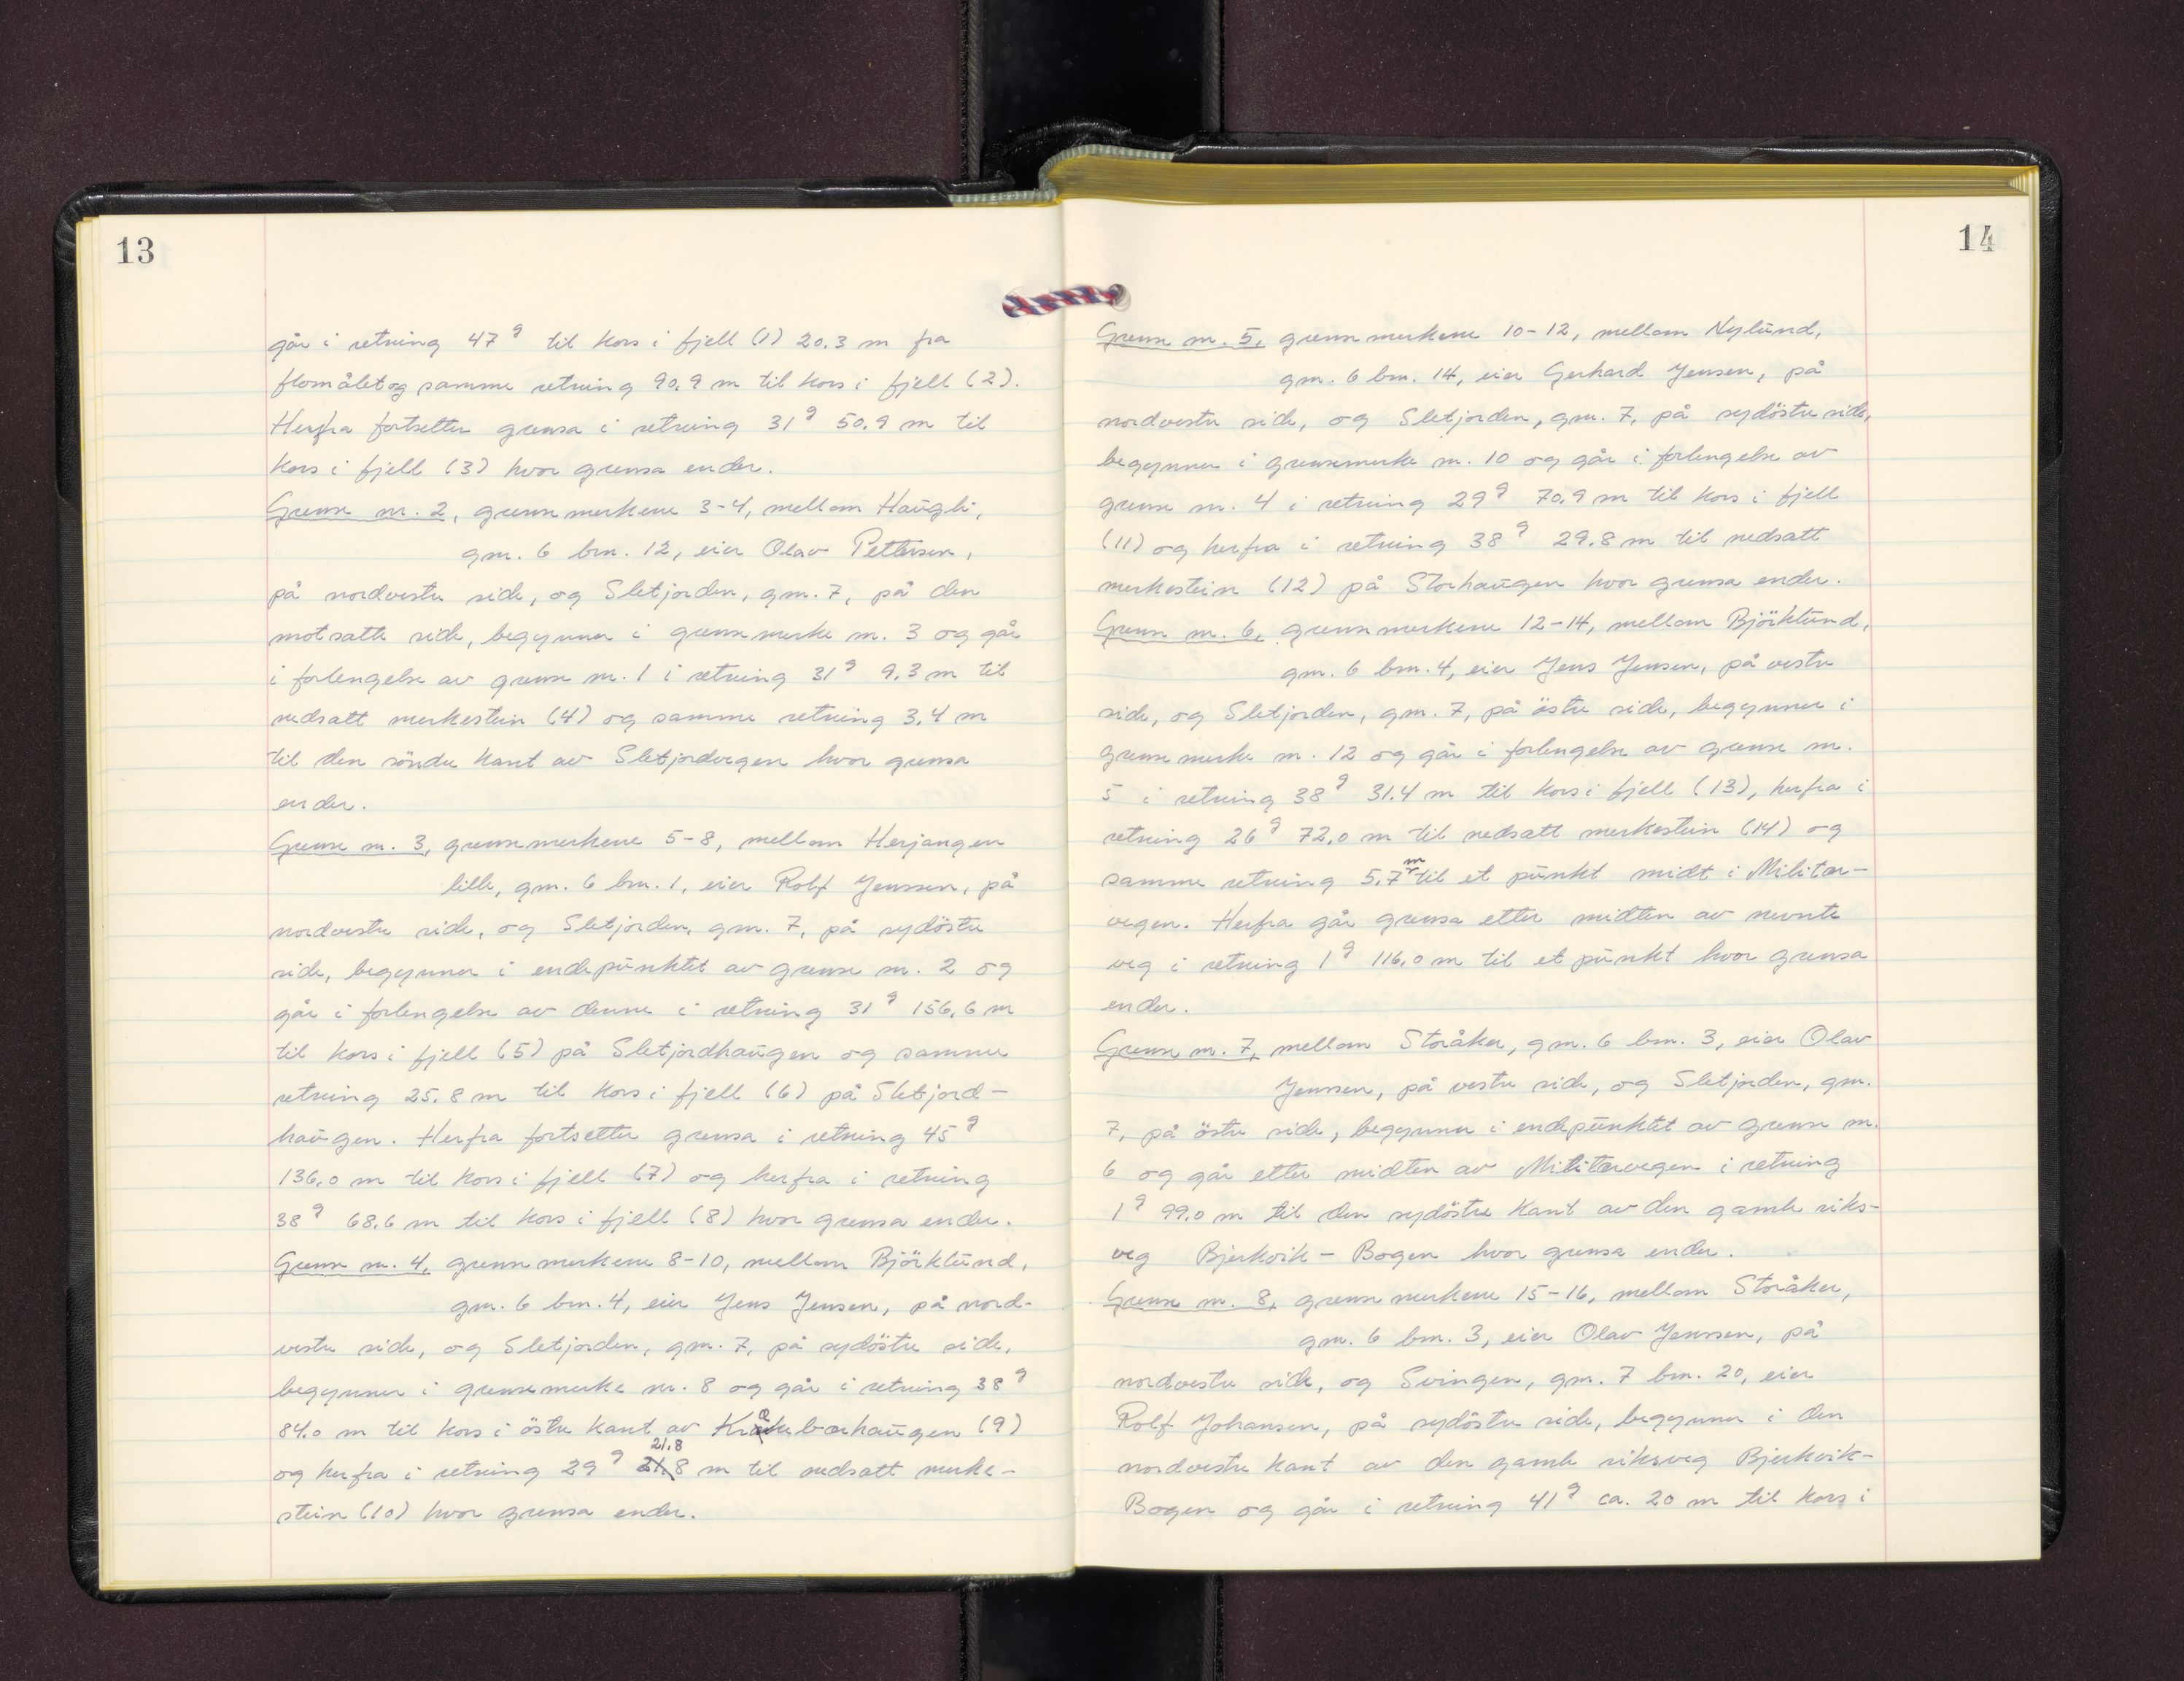 13
går i retning 47 g til kors i fjell (1) 20.3 m fra
flomålet og samme retning 90.9 m til kors i fjell (2).
Herfra fortsetter grensa i retning 31 g 50.9 m til
kors i fjell (3) hvor grensa ender.
Grense nr. 2, grensemerkene 3-4, mellom Haugli,
gnr. 6 bnr. 12, eier Olav Pettersen,
på nordvestre side, og Sletjorden, gnr. 7, på den
motsatte side, begynner i grensemerke nr. 3 og går
i forlengelse av grense nr. 1 i retning 31 g 9.3 m til
nedsatt merkestein (4) og samme retning 3.4 m
til den söndre kant av Sletjordvegen hvor grensa
ender.
Grense nr. 3, grensemerkene 5-8, mellom Herjangen
lille, gnr. 6 bnr. 1, eier Rolf Jenssen, på
nordvestre side, og Sletjorden, gnr. 7, på sydöstre
side, begynner i endepunktet av grense nr. 2 og
går i forlengelse av denne i retning 31 g 156.6 m
til kors i fjell (5) på Sletjordhaugen og samme
retning 25.8 m til kors i fjell (6) på Sletjord-
haugen. Herfra fortsetter grensa i retning 45 g
136.0 m til kors i fjell (7) og herfra i retning
38 g 68.6 m til kors i fjell (8) hvor grensa ender.
Grense nr. 4, grensemerkene 8-10, mellom Björklund,
gnr. 6 bnr. 4, eier Jens Jensen, på nord-
vestre side, og Sletjorden, gnr. 7, på sydöstre side,
begynner i grensemerke nr. 8 og går i retning 38 g
84.0 m til kors i östre kant av Kråkebærhaugen (9)
og herfra i retning 29 g 21.8 m til nedsatt merke-
stein (10) hvor grensa ender.
14
Grense nr. 5, grensemerkene 10-12, mellom Nylund,
gnr. 6 bnr. 14, eier Gerhard Jensen, på
nordvestre side, og Sletjorden, gnr. 7, på sydöstre side,
begynner i grensemerke nr. 10 og går i forlengelse av
grense nr. 4 i retning 29 g 70.9 m til kors i fjell
(11) og herfra i retning 38 g 29.8 m til nedsatt
merkestein (12) på Storhaugen hvor grensa ender.
Grense nr. 6, grensemerkene 12-14, mellom Björklund,
gnr. 6 bnr. 4, eier Jens Jensen, på vestre
side, og Sletjorden, gnr. 7, på östre side, begynner i
grensemerke nr. 12 og går i forlengelse av grense nr.
5 i retning 38 g 31.4 m til kors i fjell (13), herfra i
retning 26 g 72.0 m til nedsatt merkestein (14) og
samme retning 5.7 m til et punkt midt i Militær-
vegen. Herfra går grensa etter midten av nevnte
veg i retning 1 g 116.0 m til et punkt hvor grensa
ender.
Grense nr. 7, mellom Storåker, gnr. 6 bnr. 3, eier Olav
Jenssen, på vestre side, og Sletjorden, gnr.
7, på östre side, begynner i endepunktet av grense nr.
6 og går etter midten av Militærvegen i retning
1 g 99.0 m til den sydöstre kant av den gamle riks-
veg Bjerkvik - Bogen hvor grensa ender.
Grense nr. 8, grensemerkene 15-16, mellom Storåker,
gnr. 6 bnr. 3, eier Olav Jenssen, på
nordvestre side, og Svingen, gnr. 7 bnr. 20, eier
Rolf Johansen, på sydöstre side, begynner i den
nordvestre kant av den gamle riksveg Bjerkvik-
Bogen og går i retning 41 g ca. 20 m til kors i